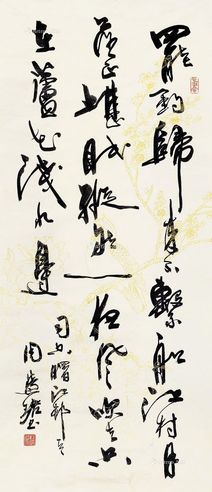 罷釣歸來不繫船江村月
落正堪眠縱然一夜風吹去只
在蘆花淺水邊
司空曙江邨
周慧珺